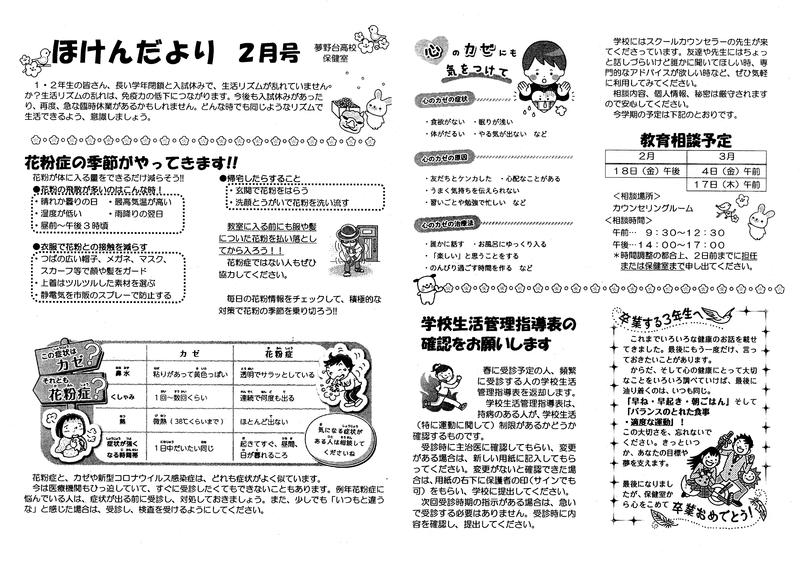 ほけんだより 2月号
夢野台高校
保健室
1・2年生の皆さん、長い学年閉鎖と入試休みで、生活リズムが乱れていません
か？生活リズムの乱れは、免疫力の低下につながります。今後も入試休みがあった
り、再度、急な臨時休業があるかもしれません。どんな時でも同じようなリズムで
生活できるよう、意識しましょう。
花粉症の季節がやってきます!!
花粉が体に入る量をできるだけ減らそう!!
●花粉の飛散が多いのはこんな時！
・晴れか曇りの日 ・最高気温が高い
・湿度が低い ・雨降りの翌日
・昼前～午後3時頃
●衣服で花粉との接触を減らす
・つばの広い帽子、メガネ、マスク、
スカーフ等で顔や髪をガード
・上着はツルツルした素材を選ぶ
・静電気を市販のスプレーで防止する
●帰宅したらすること
・玄関で花粉をはらう
・洗顔とうがいで花粉を洗い流す
教室に入る前にも服や髪
についた花粉を払い落とし
てから入ろう！！
花粉症ではない人もぜひ
協力してください。
毎日の花粉情報をチェックして、積極的な
対策で花粉の季節を乗り切ろう!!
この症状は
カゼ?
それとも
花粉症?
カゼ 花粉症
鼻水 粘りがあって黄色っぽい 透明でサラッとしている
くしゃみ 1回～数回くらい 連続で何度も出る
熱 微熱（38℃くらいまで） ほとんど出ない
症状が強く
なる時間帯
1日中だいたい同じ
起きてすぐ、昼間、
日が暮れるころ
気になる症状が
ある人は相談して
くださいね
花粉症と、カゼや新型コロナウイルス感染症は、どれも症状がよく似ています。
今は医療機関もひっ迫していて、すぐに受診したくてもできないこともあります。例年花粉症に
悩んでいる人は、症状が出る前に受診し、対処しておきましょう。また、少しでも「いつもと違う
な」と感じた場合は、受診し、検査を受けるようにしてください。
心のカゼにも
気をつけて
心のカゼの症状
・食欲がない ・眠りが浅い
・体がだるい ・やる気が出ない など
心のカゼの原因
・友だちとケンカした ・心配なことがある
・うまく気持ちを伝えられない
・習いごとや勉強で忙しい など
心のカゼの治療法
・誰かに話す ・お風呂にゆっくり入る
・「楽しい」と思うことをする
・のんびり過ごす時間を作る など
学校にはスクールカウンセラーの先生が来
てくださっています。友達や先生にはちょっ
と話しづらいけど誰かに聞いてほしい時、専
門的なアドバイスが欲しい時など、ぜひ気軽
に利用してみてください。
相談内容、個人情報、秘密は厳守されます
ので安心してください。
今学期の予定は下記のとおりです。
教育相談予定
2月 3月
18日（金）午後 4日（金）午前
17日（木）午前
＜相談場所＞
カウンセリングルーム
＜相談時間＞
午前… 9：30～12：30
午後…14：00～17：00
＊時間調整の都合上、2日前までに担任
または保健室まで申し出てください。
学校生活管理指導表の
確認をお願いします
春に受診予定の人、頻繁
に受診する人の学校生活
管理指導表を返却します。
学校生活管理指導表は、
持病のある人が、学校生活
（特に運動に関して）制限があるかどうか
確認するものです。
受診時に主治医に確認してもらい、変更
がある場合は、新しい用紙に記入してもら
ってください。変更がないと確認できた場
合は、用紙の右下に保護者の印（サインでも
可）をもらい、学校に提出してください。
次回受診時期の指示がある場合は、急い
で受診する必要はありません。受診時に内
容を確認し、提出してください。
卒業する3年生へ
これまでいろいろな健康のお話を載せ
てきました。最後にもう一度だけ、言っ
ておきたいことがあります。
からだ、そして心の健康にとって大切
なことをいろいろ調べていけば、最後に
辿り着くのは、いつも同じ。
「早ね・早起き・朝ごはん」そして
「バランスのとれた食事
・適度な運動」！
この大切さを、忘れないで
ください。きっといつ
か、あなたの目標や
夢を支えます。
最後になりまし
たが、保健室か
ら心をこめて
卒業おめでとう！